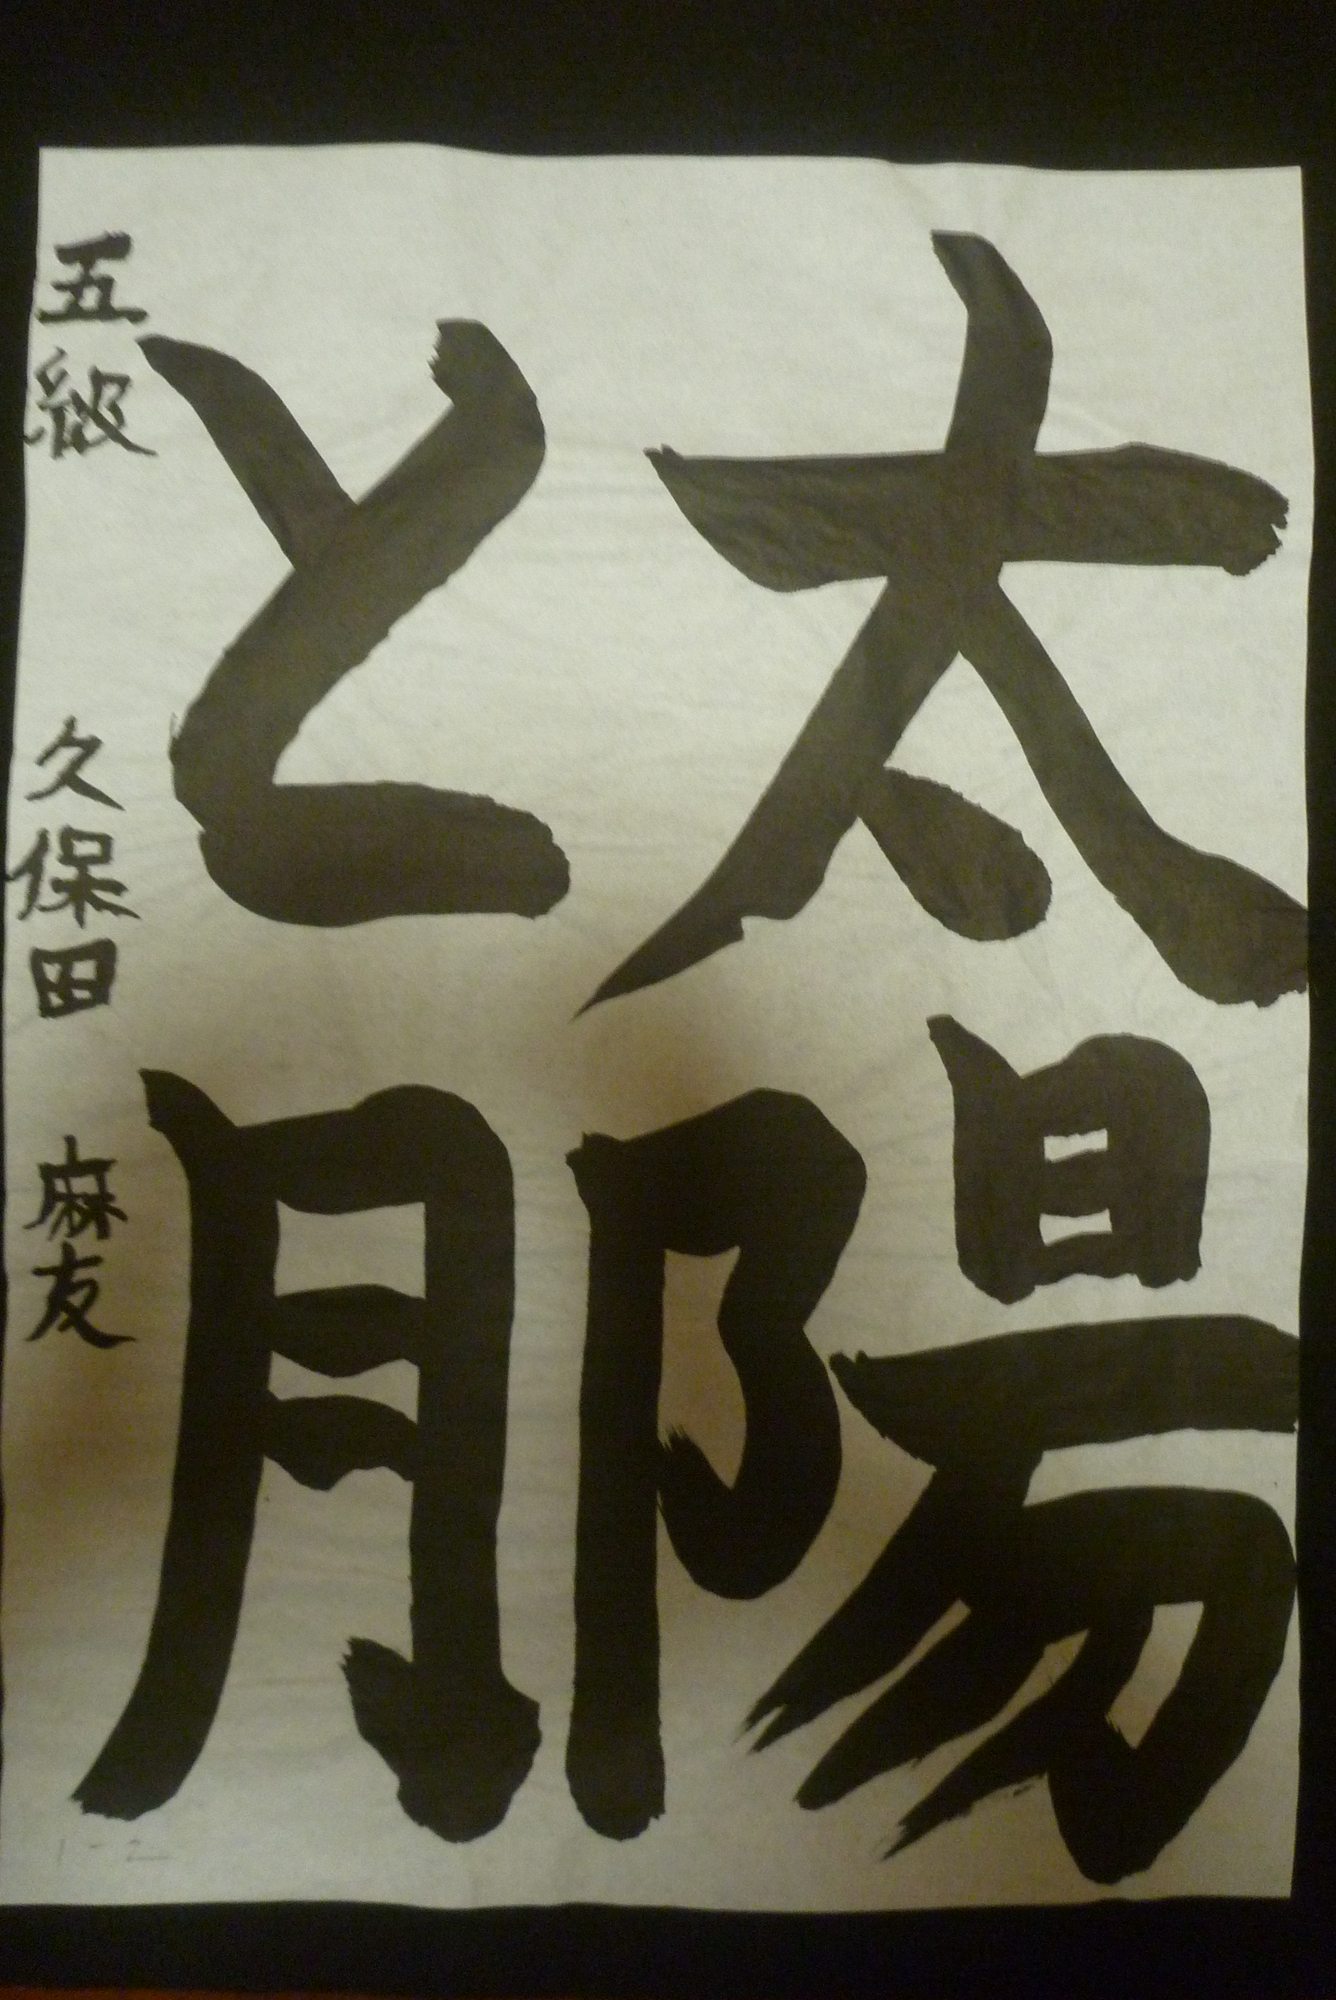 太陽
と月
五級 久保田 麻友
1-2